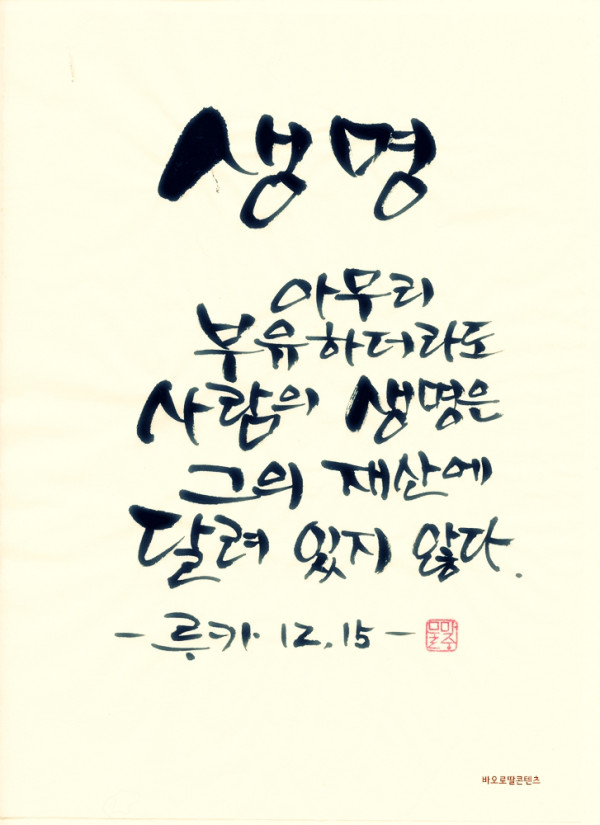 생명
아무리
부유하더라도
사람의 생명은
그의 재산에
달려 있지 않다.
- 루카 12,15 -
바오로딸콘텐츠